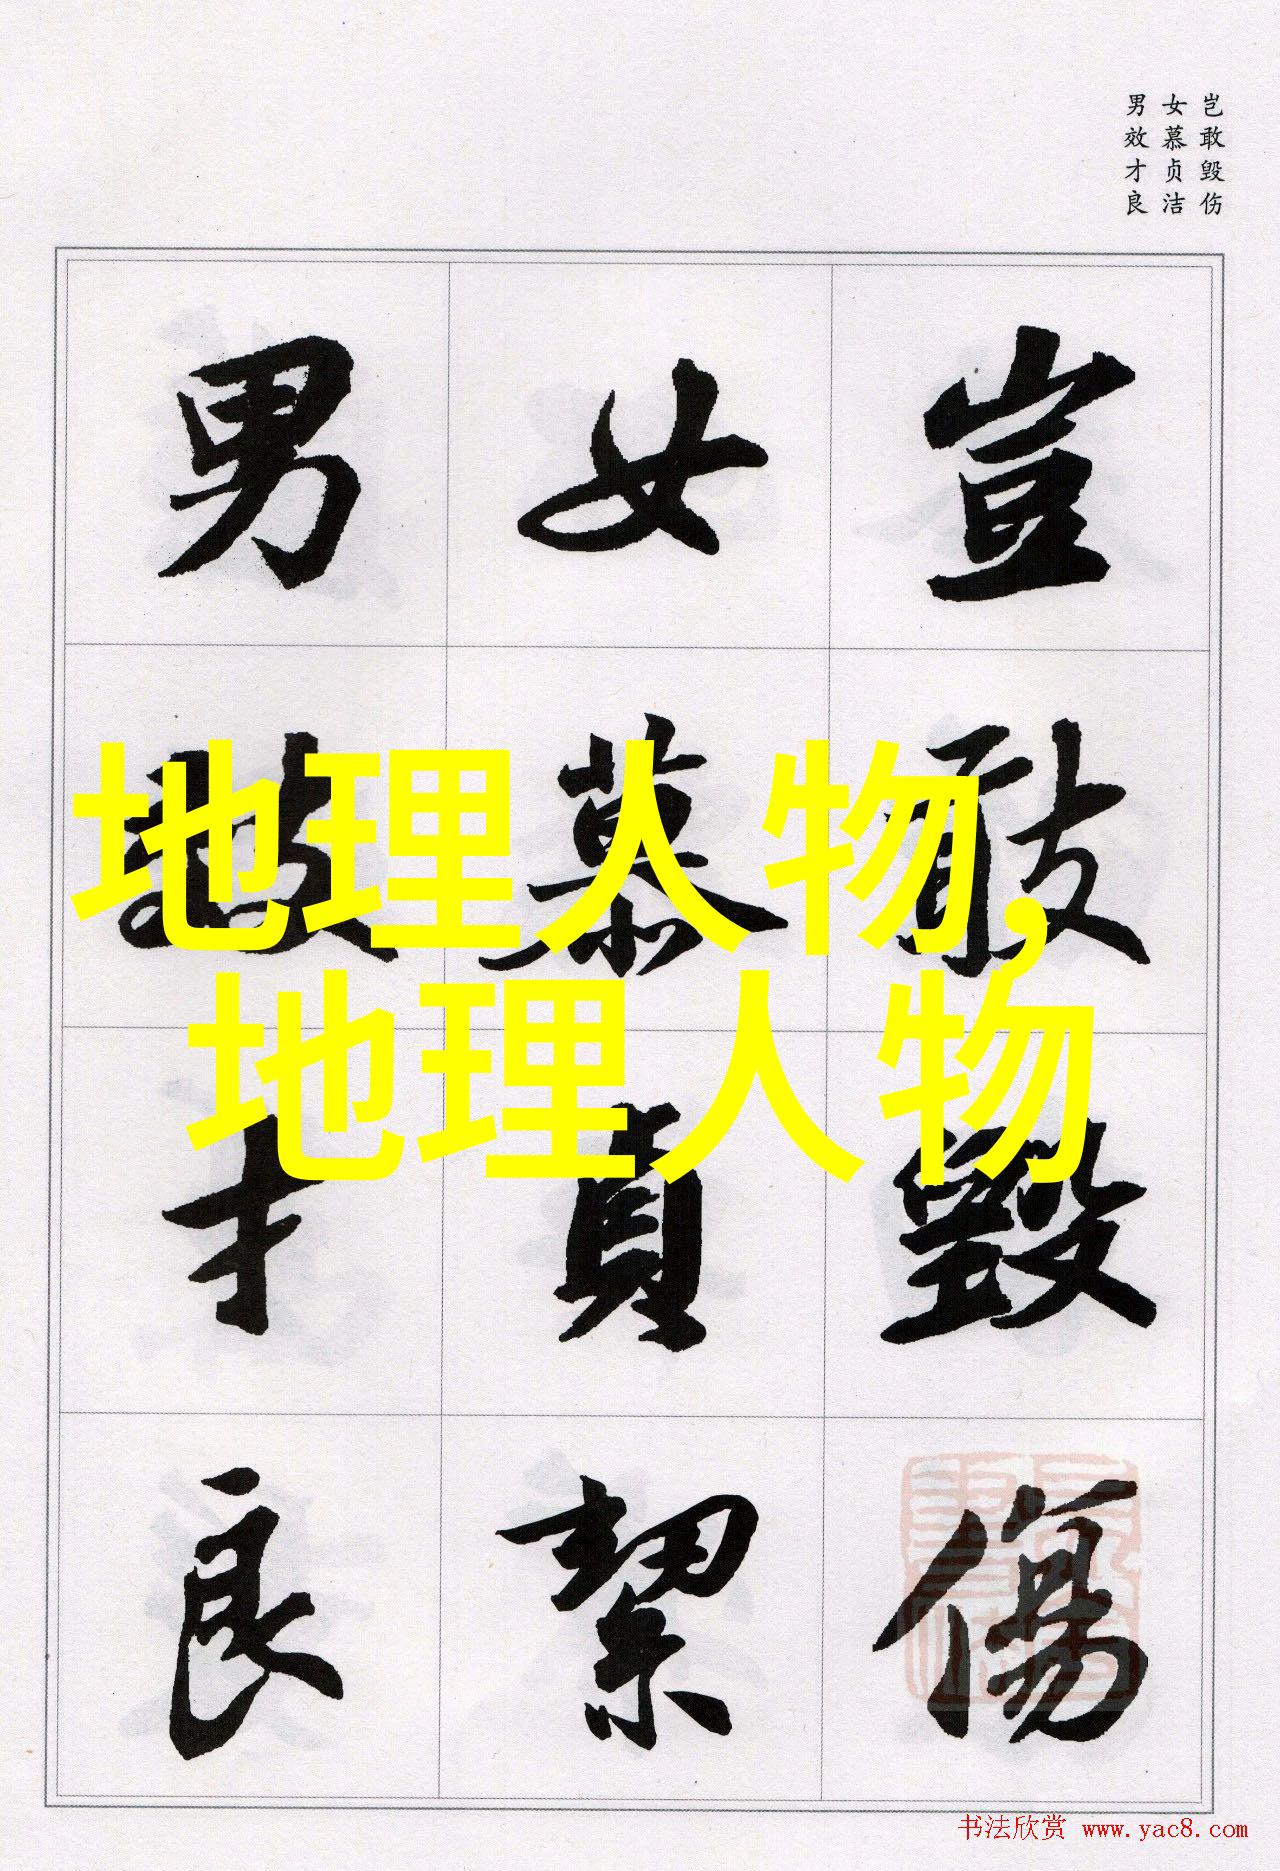 岂敢毁伤
女慕贞洁
男效才良
豈敢毀傷
女慕貞絜
男效才良
地理人物,
地理人物
书法欣赏 www.yac8.com